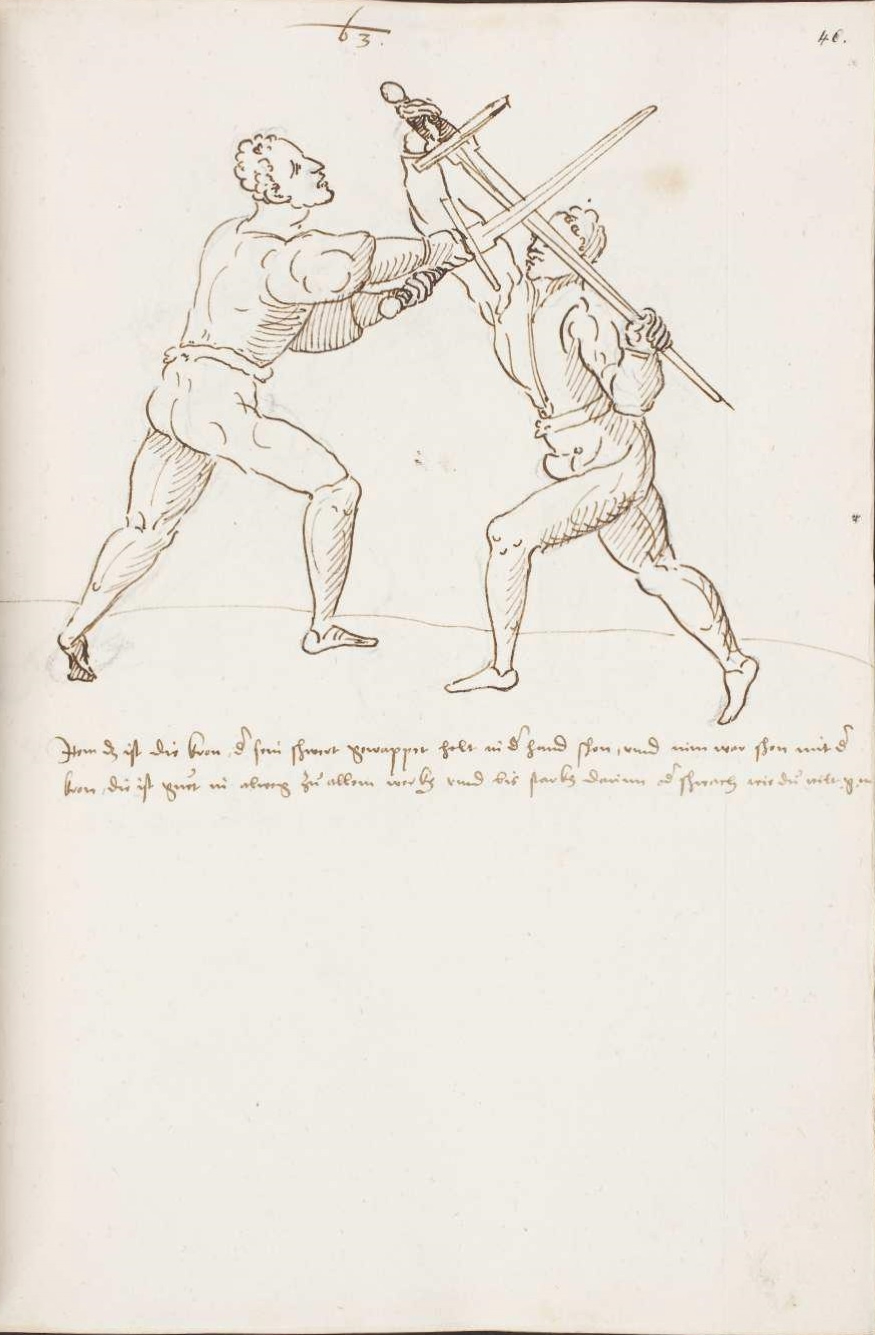 63.
46.
Item dz ist die kron d' sein shwert gewappet helt in d' hand shon, vnnd nim war shon mit d'
kron, die ist guet in alweg zu allem werkh vnnd bis starkh darinn od' shwach wie du wilt